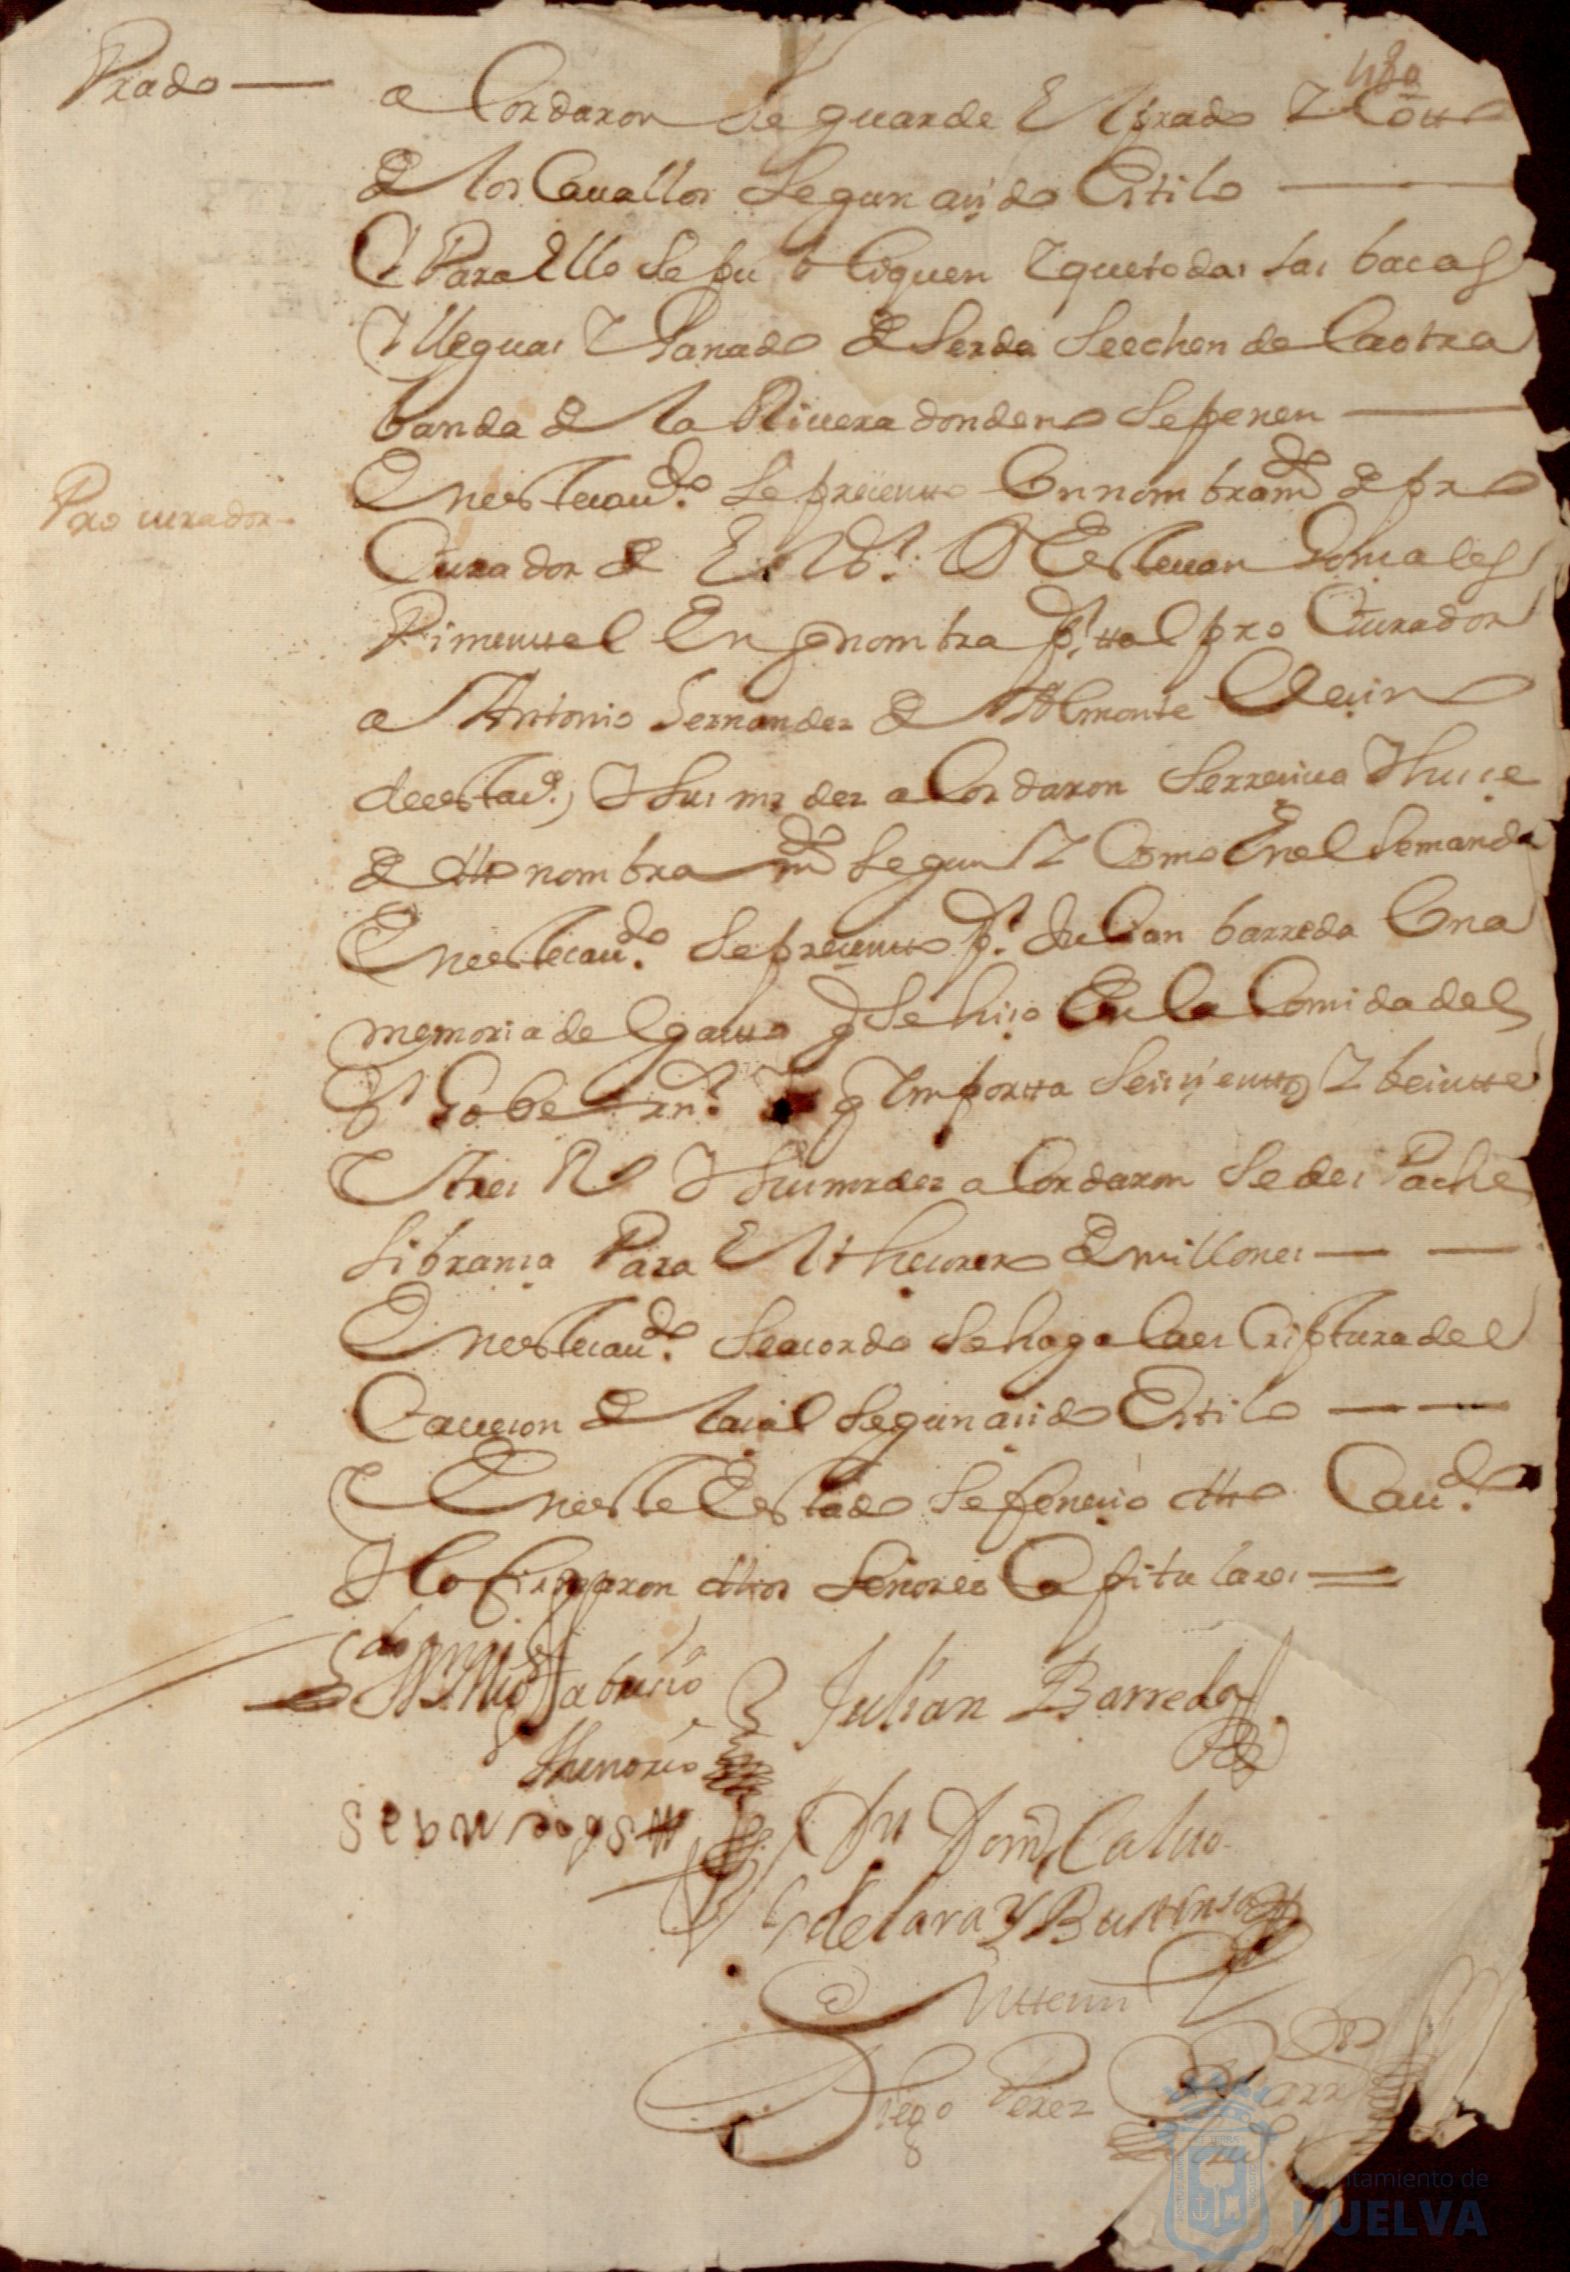 480
Prado — a Cordaron Se guarde El prado Y Cotto
de los Cauallos Segun a sido Estilo —
Y Para Ello Se publiquen Y que todas las bacas
Y lleguas Y Ganado de Serda Se echen de la otra
banda de la Riuera donde no Se penen —
Procurador
En este cau.do Se presento Un nombram.to de pro
Curador de El S.r D Esteuan Gonsales
Pimenttel En q nombra p.r ttal pro Curador
a Antonio Fernandez de Almonte Vecino
de esta v.a, Y Sus mrdes a Cordaron Se rreciua Y huse
de dtto nombra m.to Segun Y Como En el Se manda
En este cau.do Se presento p.r Julian barreda Una
memoria del gasto q Se hiso En la Comida del
S.r Gobern.r q Ymportta Seiscienttos Y beintte
Y tres R.s Y Sus mrdes a Cordaron Se des Pache
libransa Para El thesorero de millones — —
En este cau.do Se acordo Se haga la es Criptura del
Cauecon de la sal Segun a sido Estilo — —
Y En este Estado Se fenecio dtto Cau.do
Y lo firmaron dttos Señores Capitulares =
Fabricio
thenorio
Julian Barreda
Ju Dom.o Caluo
de lara Y Bustinsa
Antte mi
Diego Perez
Ayuntamiento de
HUELVA